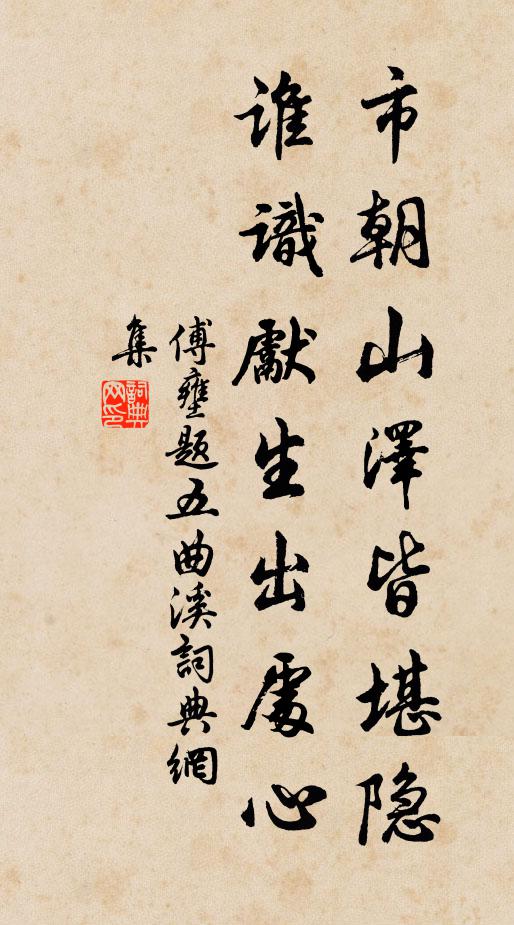 市朝山澤皆堪隐
誰識獻生出處心
傅壅题五曲溪詞典網
集
詞典网印